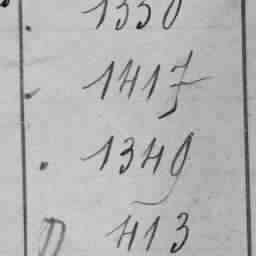 1330
1417
1349
413